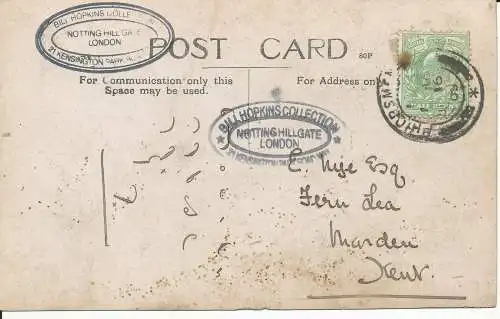 BILL HOPKINS COLLECTION
NOTTING HILL GATE
LONDON
21 KENSINGTON PARK
POST CARD
80P
For Communication only this
Space may be used.
For Address only
BILL HOPKINS COLLECTION
NOTTING HILL GATE
LONDON
21 KENSINGTON PARK ROAD W11
E. Nye Esq
Fern Lea
Marden
Kent.